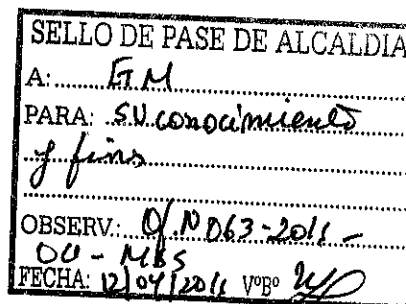 SELLO DE PASE DE ALCALDIA
A: G.M
PARA: SU conocimiento
y fines
OBSERV.: O/. N 063-2011 -
OCI - MBS
FECHA: 12/04/2011 VºBº